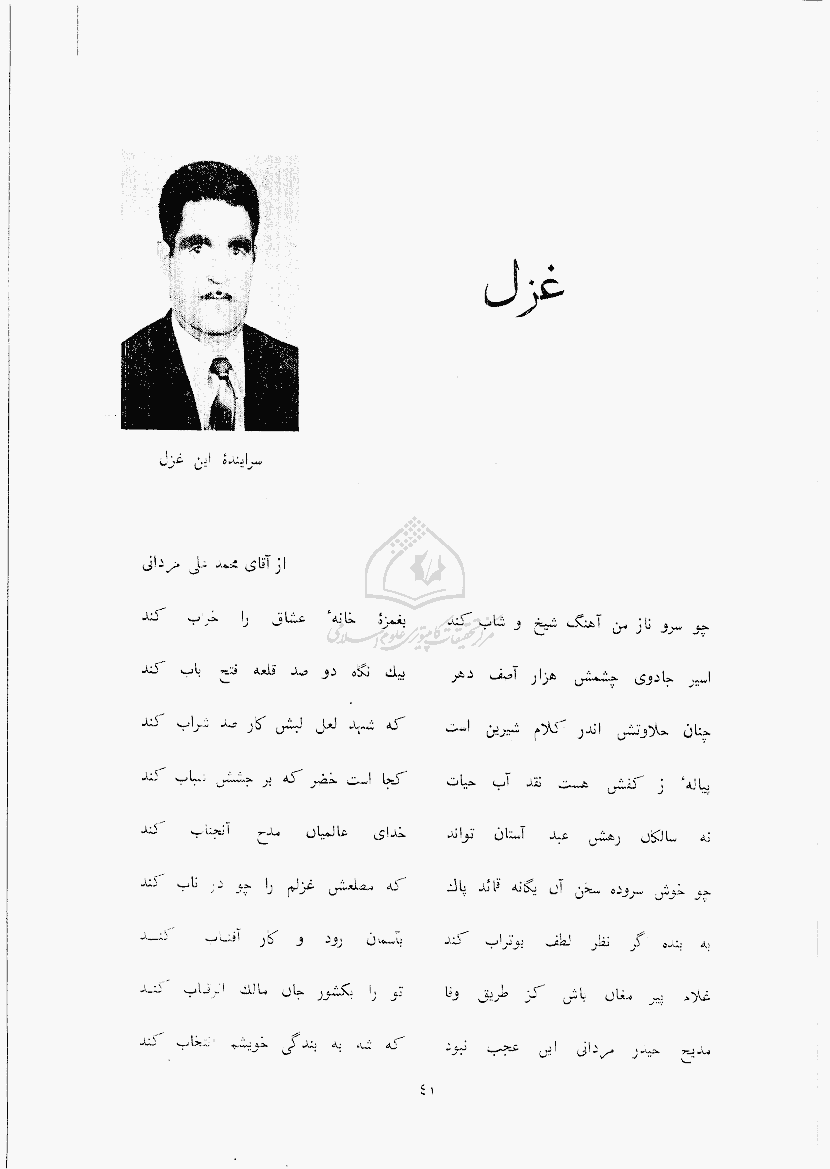 غزل
سرایندهٔ این غزل
از آقای محمد علی مردانی
مرکز تحقیقات کامپیوتری علوم اسلامی
چو سرو ناز من آهنگ شیخ و شاب کند بغمزهٔ خانهٔ عشاق را خراب کند
اسیر جادوی چشمش هزار آصف دهر بیك نگاه دو صد قلعه فتح باب کند
چنان حلاوتش اندر کلام شیرین است که شهد لعل لبش کار صد شراب کند
پیالهٔ ز کفش هست نقد آب حیات کجا است خضر که بر جشنش شتاب کند
نه سالکان رهش عبد آستان تواند خدای عالمیان مدح آنجناب کند
چو خوش سروده سخن آن یگانه قائد پاك که مطلعش غزلم را چو در ناب کند
به بنده گر نظر لطف بوتراب کند بآسمان رود و کار آفتاب کند
غلام پیر مغان باش کز طریق وفا تو را بکشور جان مالك الرقاب کند
مدیح حیدر مردانی این عجب نبود که شه به بندگی خویشم انتخاب کند
٤١